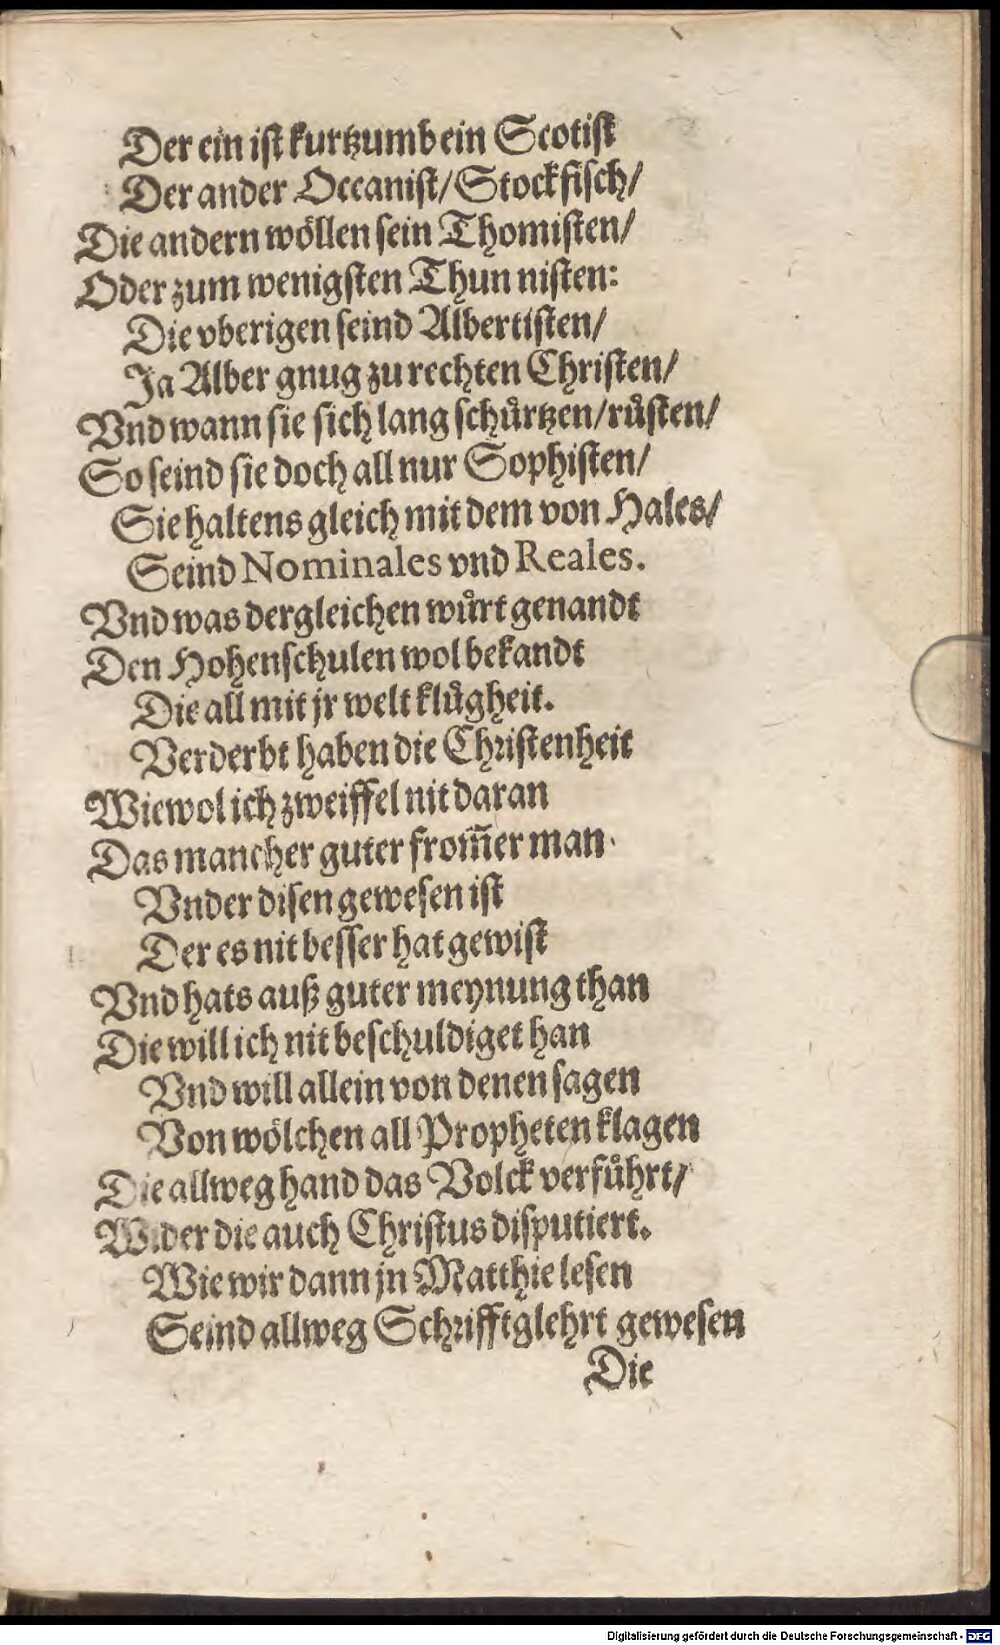 Der ein ist kurtzumb ein Scotist
Der ander Occanist/ Stockfisch/
Die andern wöllen sein Thomisten/
Oder zum wenigsten Thun nisten:
Die vberigen seind Albertisten/
Ja Alber gnug zu rechten Christen/
Vnd wann sie sich lang schůrtzen/ růsten/
So seind sie doch all nur Sophisten/
Sie haltens gleich mit dem von Hales/
Seind Nominales vnd Reales.
Vnd was dergleichen wůrt genandt
Den Hohenschulen wol bekandt
Die all mit jr welt klůgheit.
Verderbt haben die Christenheit
Wiewol ich zweiffel nit daran
Das mancher guter from̃er man.
Vnder disen gewesen ist
Der es nit besser hat gewist
Vnd hats auß guter meynung than
Die will ich nit beschuldiget han
Vnd will allein von denen sagen
Von wölchen all Propheten klagen
Die allweg hand das Volck verfůhrt/
Wider die auch Christus disputiert.
Wie wir dann jn Matthie lesen
Seind allweg Schrifftglehrt gewesen
Die
Digitalisierung gefördert durch die Deutsche Forschungsgemeinschaft - DFG